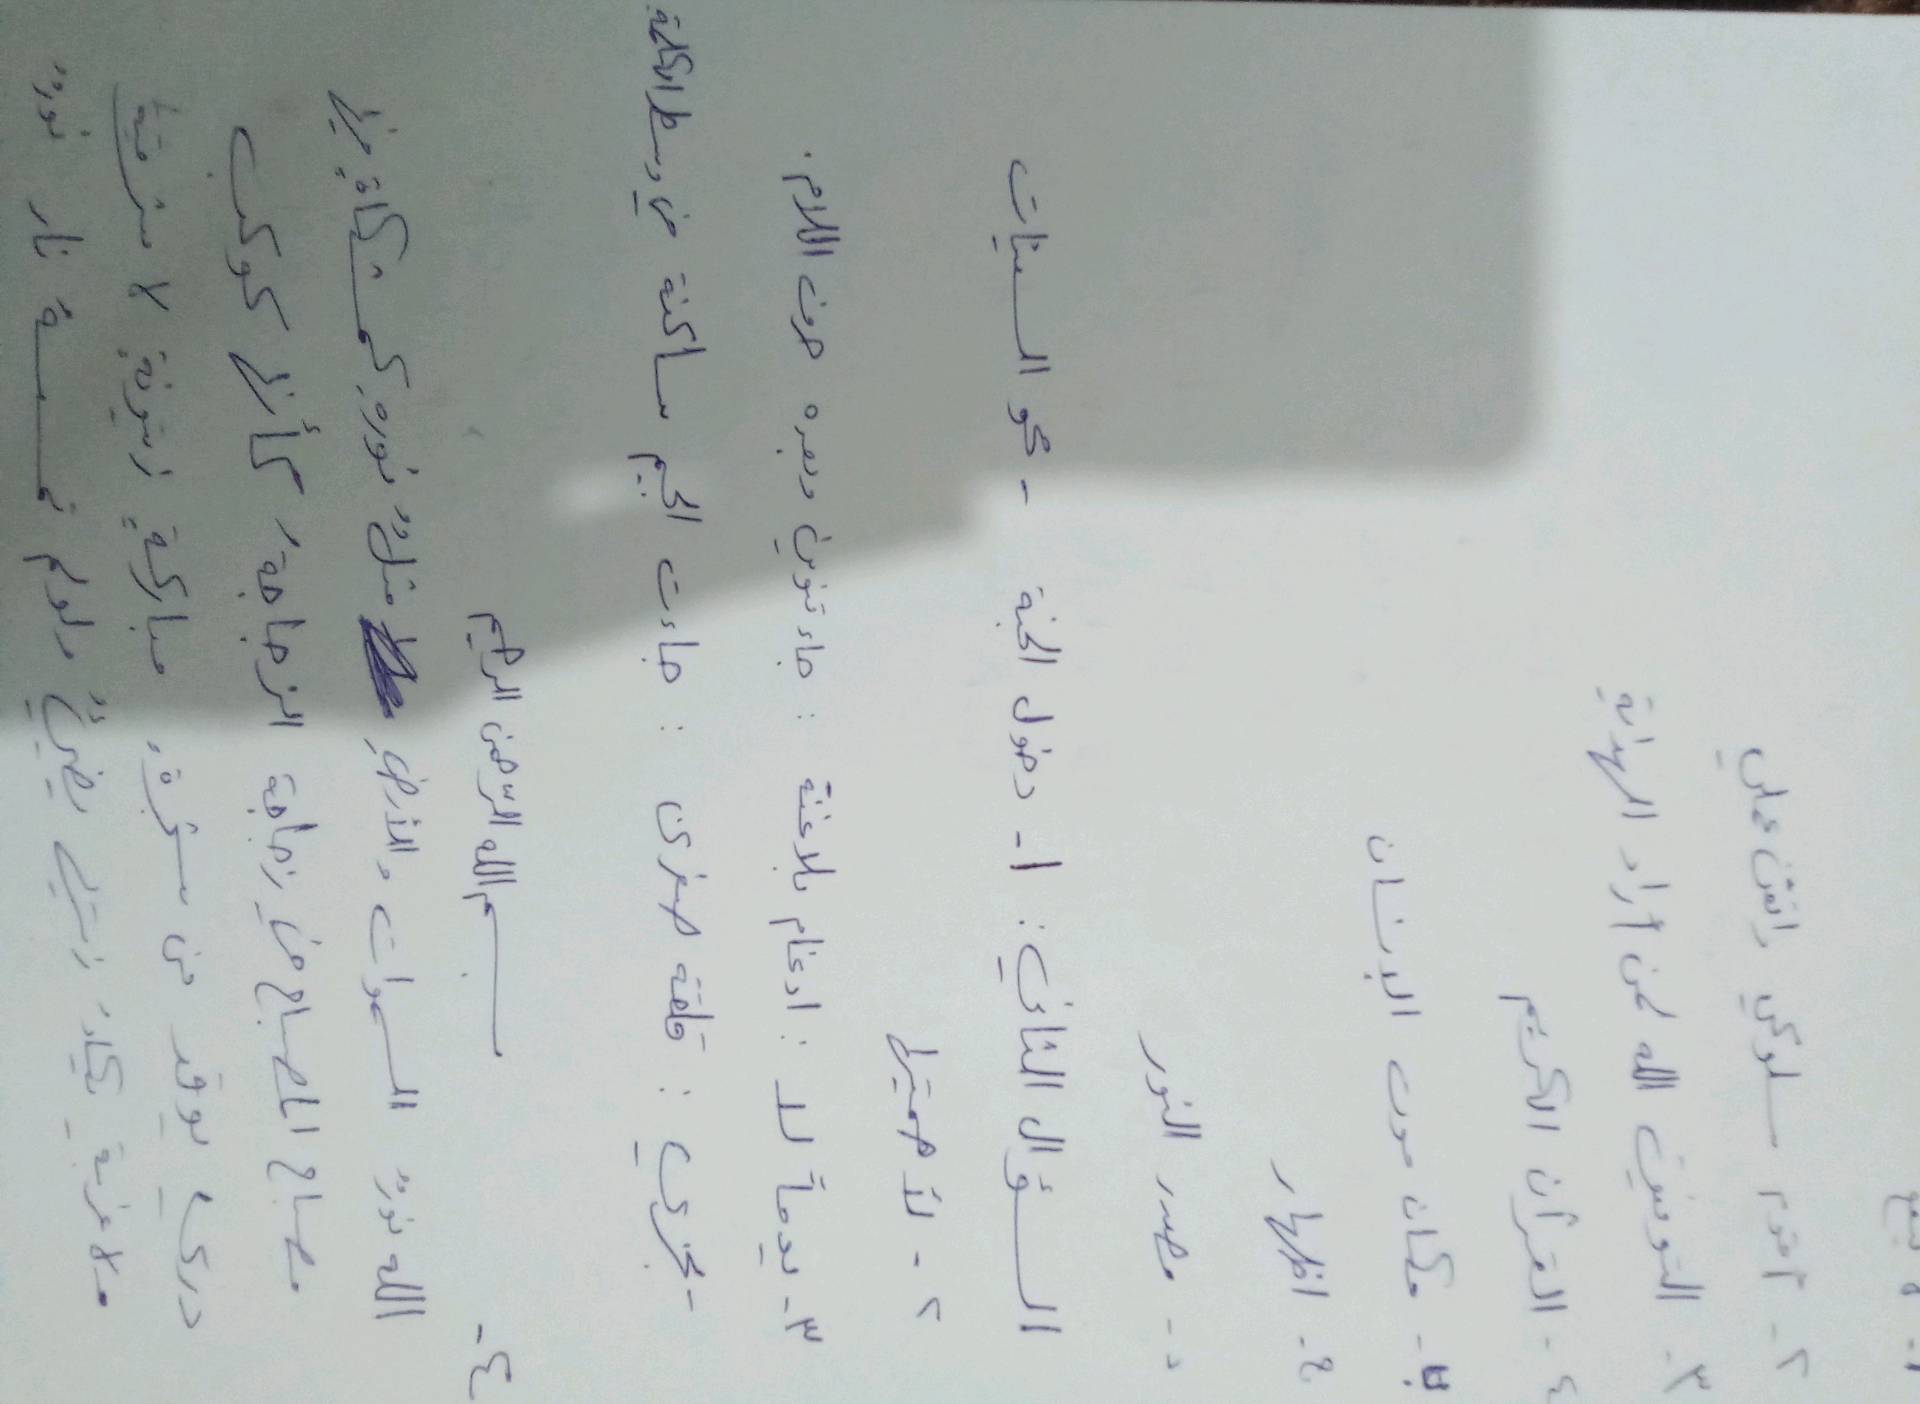 ٢- أقوم سلوكي وانفس عملي
٣- التوفيق من الله لمن أراد الهداية
٤- القرآن الكريم
ب- مكان موت الإنسان
ج- اظهار
د- مصدر النور
السؤال الثاني: ١- دخول الجنة - محو السيئات
٢- لأهميتها
٣- يوماً لا : ادغام بلاغنة : جاء تنوين وبعده حرف اللام.
- يجزي : قلقة صغرى : جاءت الجيم ساكنة في وسط الكلمة
٤- بسم الله الرحمن الرحيم
الله نورُ السموات والأرضِ مثلُ نوره كمشكاةٍ فيها
مصباح المصباح في زجاجة الزجاجةُ كأنها كوكب
دري يوقد من شجرةٍ مباركةٍ زيتونةٍ لا شرقيةٍ
ولا غربيةٍ يكادُ زيتها يضيءُ ولو لم تمسسهُ نار نورٌ